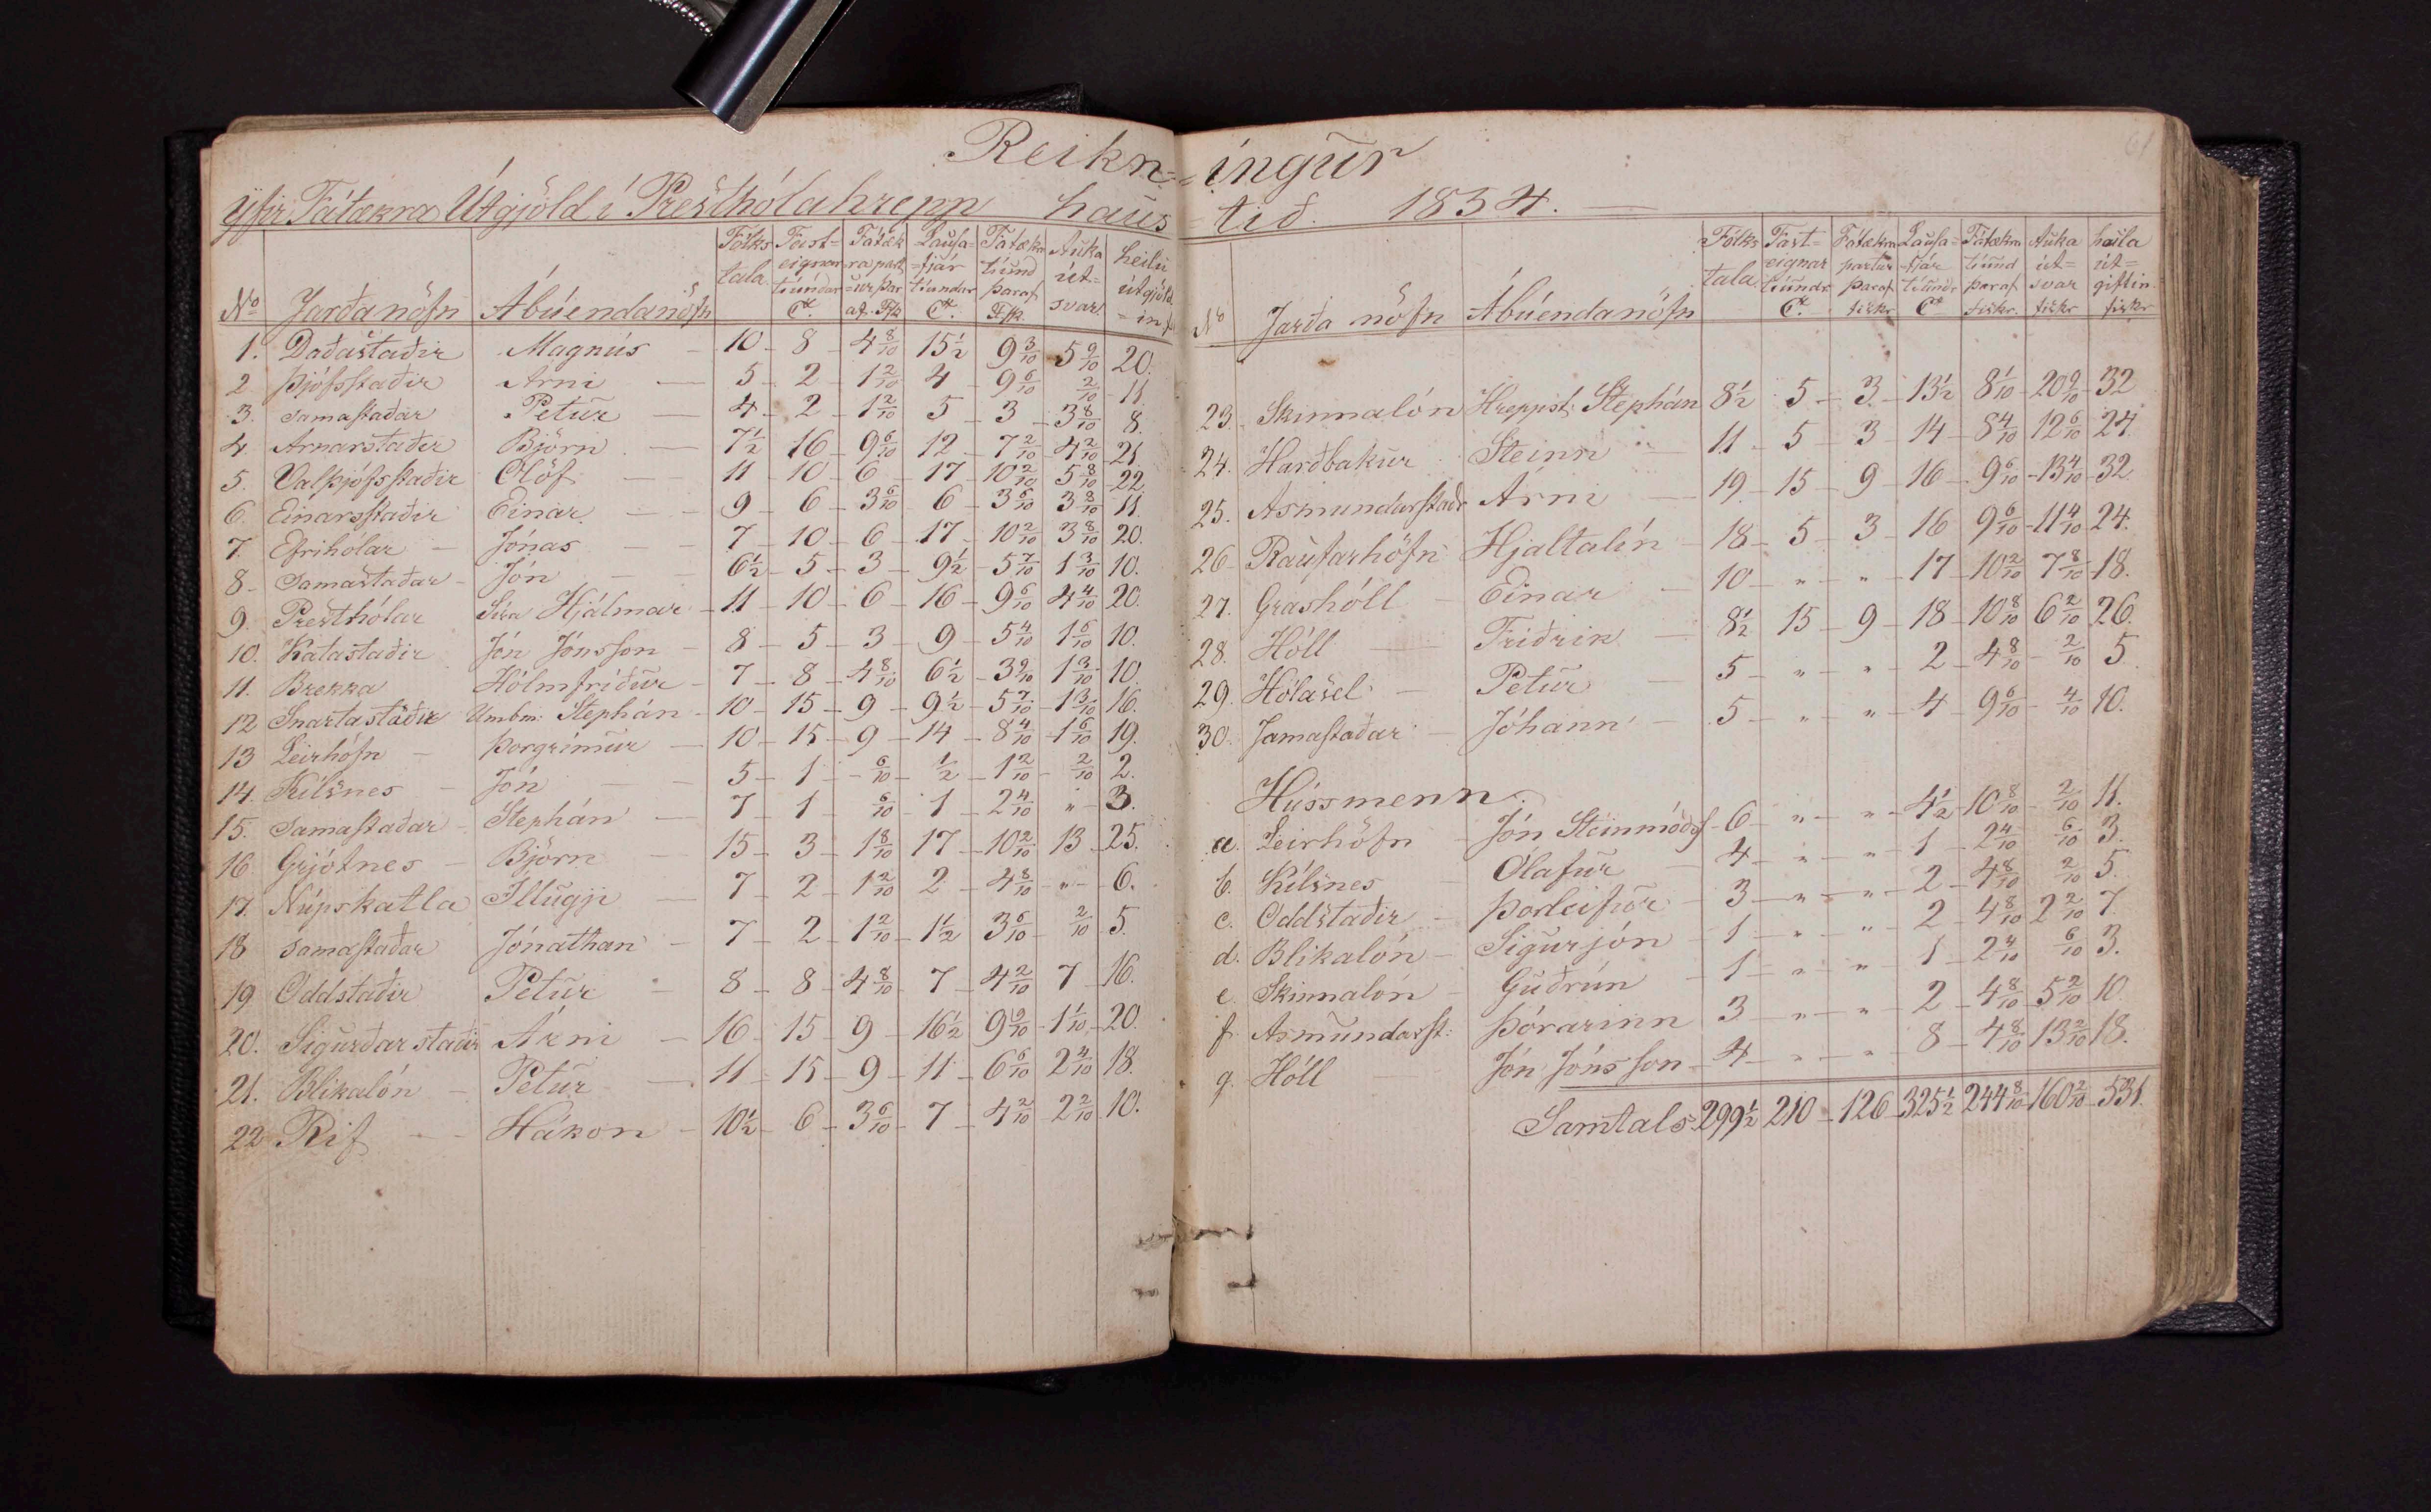 Reikn=
yfir Fátækra Útgjöld í Presthólahrepp haus
No Jarða nöfn Ábúenda nöfn Fólks tala Fast= eignar tíundar Cr. Fátæk =ra part =ur þar af. Fsk Lausa= =fjár tíundar Cr. Fátækra tíund þaraf Fsk. Auka út= svar heilu útgjöld = in
1. Daðastaðir Magnús 10 8 4 8/10 15 1/2 9 3/10 5 9/10 20.
2 Þjófsstaðir Arni 5 2 1 2/10 4 9 6/10 2/10 11.
3. samastaðar Petur 4 2 1 2/10 5 3 3 8/10 8.
4. Arnarstaðir Björn 7 1/2 16 9 6/10 12 7 2/10 4 2/10 21
5. Valþjófsstaðir Ólöf 11 10 6 17 10 2/10 5 8/10 22
6. Einarsstaðir Einar 9 6 3 6/10 6 3 6/10 3 8/10 11.
7. Efrihólar Jónas 7 10 6 17 10 2/10 3 8/10 20.
8 samastaðar Jón 6 1/2 5 3 9 1/2 5 7/10 1 3/10 10.
9. Presthólar Sira Hjálmar 11 10 6 16 9 6/10 4 4/10 20.
10. Katastaðir Jón Jónsson 8 5 3 9 5 4/10 1 6/10 10.
11. Brekka Hólmfríður 7 8 4 8/10 6 1/2 3 9/10 1 3/10 10.
12 Snartastaðir Umbm: Stephán 10 15 9 9 1/2 5 7/10 1 3/10 16.
13 Leirhöfn Þorgrímur 10 15 9 14 8 4/10 1 6/10 19.
14. Kílsnes Jón 5 1 6/10 1/2 1 2/10 2/10 2.
15. samastaðar Stephán 7 1 6/10 1 2 4/10 " 3.
16 Grjótnes Björn 15 3 1 8/10 17 10 2/10 13 25.
17. Núpskatla Íllugji 7 2 1 2/10 2 4 8/10 " 6.
18 samastaðar Jónathan 7 2 1 2/10 1 1/2 3 6/10 2/10 5.
19 Oddstaðir Petur 8 8 4 8/10 7 4 2/10 7 16.
20. Sigurðarstaðir Árni 16 15 9 16 1/2 9 9/10 1 1/10 20.
21. Blikalón Petur 11 15 9 11 6 6/10 2 4/10 18.
22 Rif Hákon 10 1/2 6 3 6/10 7 4 2/10 2 2/10 10.
=íngur
=tið. 1834.
61
No Jarða nöfn Ábúenda nöfn Fólks tala Fast= eignar tíundr Cr. Fátækra partur þaraf fiskr Lausa= =fjár tíundr Cr Fátækra tíund þaraf fiskr. Auka út= svar fiskr heila út= giftin fiskr
23. Skinnalón Hreppst: Stephán 8 1/2 5 3 13 1/2 8 1/10 20 9/10 32
24. Harðbakur Steinn 11 5 3 14 8 4/10 12 6/10 24.
25. Asmundarstaðr Árni 19 15 9 16 9 6/10 13 4/10 32.
26 Raufarhöfn Hjaltalín 18 5 3 16 9 6/10 11 4/10 24.
27. Grashóll Einar 10 " " 17 10 2/10 7 8/10 18.
28. Hóll Friðrik 8 1/2 15 9 18 10 8/10 6 2/10 26.
29. Hólasel Petur 5 " " 2 4 8/10 2/10 5.
30. Samastaðar Jóhann 5 " " 4 9 6/10 4/10 10.
Húsmenn.
a. Leirhöfn Jón Steinmóðss 6 " " 4 1/2 10 8/10 2/10 11.
b. Kílsnes Ólafur 4 " " 1 2 4/10 6/10 3.
c. Oddstaðir Þorleifur 3 " " 2 4 8/10 2/10 5.
d. Blikalón Sigurjón 1 " " 2 4 8/10 2 2/10 7.
e. Skinnalón Guðrún 1 " " 1 2 4/10 6/10 3.
f Asmundarst: Þórarinn 3 " " 2 4 8/10 5 2/10 10.
g. Hóll Jón Jónsson 4 " " 8 4 8/10 13 2/10 18.
Samtals 299 1/2 210 126 325 1/2 244 8/10 160 2/10 531.